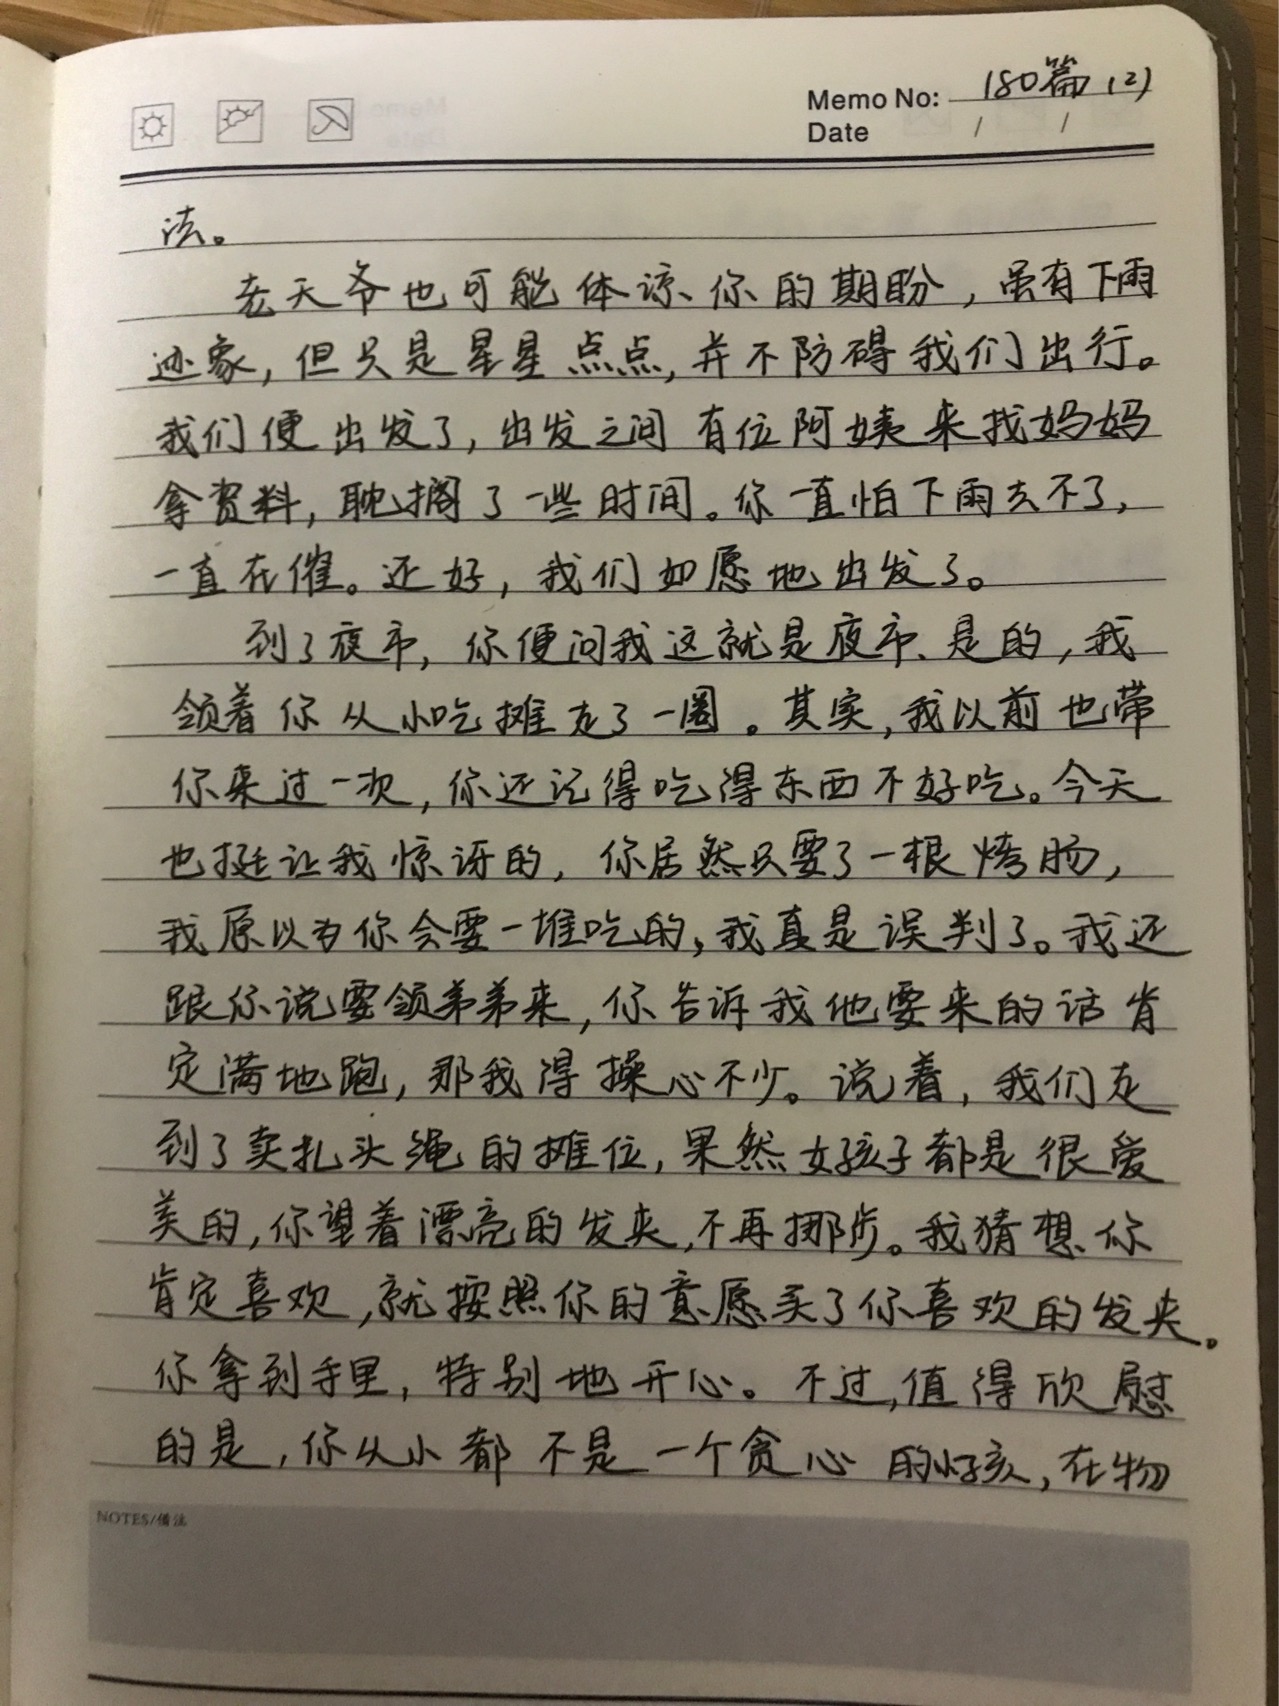 Memo No: 180篇(2)
Date / /
法。
老天爷也可能体谅你的期盼，虽有下雨
迹象，但只是星星点点，并不防碍我们出行。
我们便出发了，出发之间有位阿姨来找妈妈
拿资料，耽搁了一些时间。你一直怕下雨去不了，
一直在催。还好，我们如愿地出发了。
到了夜市，你便问我这就是夜市、是的，我
领着你从小吃摊走了一圈。其实，我以前也带
你来过一次，你还记得吃得东西不好吃。今天
也挺让我惊讶的，你居然只要了一根烤肠，
我原以为你会要一堆吃的，我真是误判了。我还
跟你说要领弟弟来，你告诉我他要来的话肯
定满地跑，那我得操心不少。说着，我们走
到了卖扎头绳的摊位，果然女孩子都是很爱
美的，你望着漂亮的发夹，不再挪步。我猜想你
肯定喜欢，就按照你的意愿买了你喜欢的发夹。
你拿到手里，特别地开心。不过，值得欣慰
的是，你从小都不是一个贪心的小孩，在物
NOTES/备注